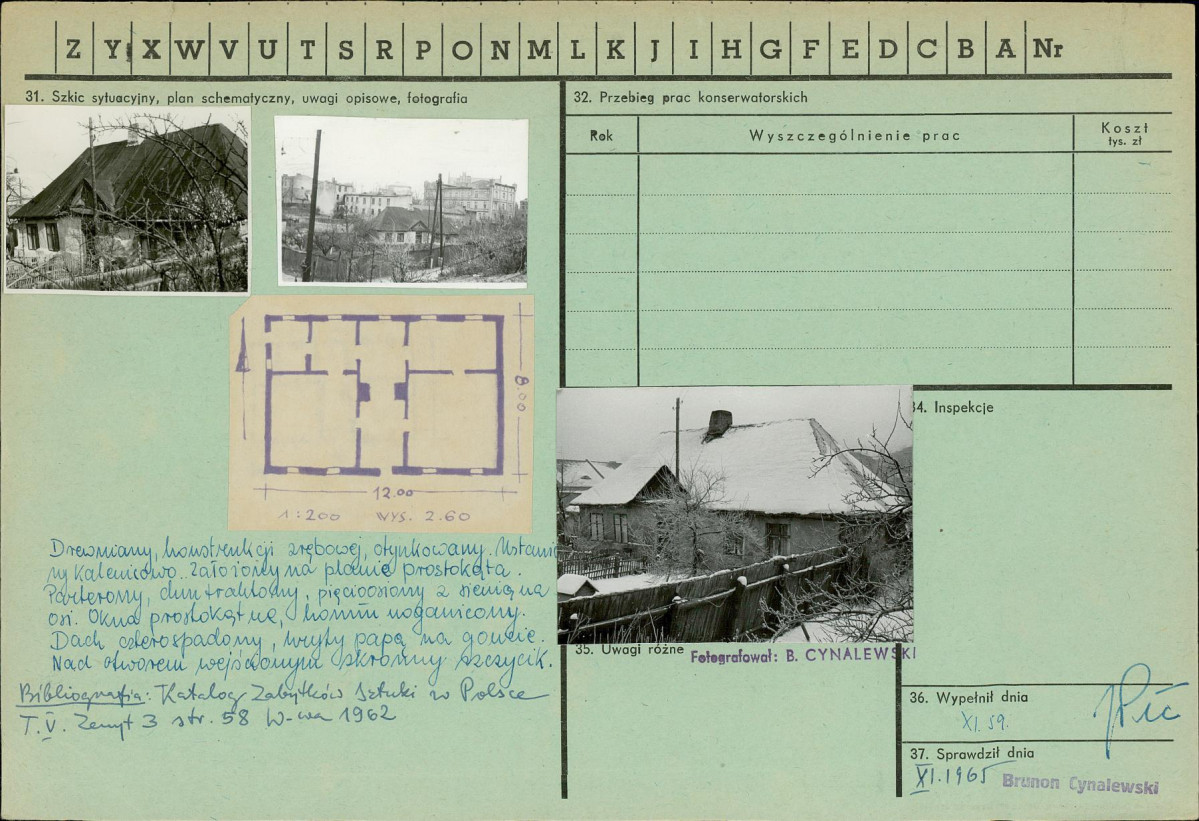 Z Y X W V U T S R P O N M L K J I H G F E D C B A Nr
31. Szkic sytuacyjny, plan schematyczny, uwagi opisowe, fotografia
8.00
12.00
1:200 WYS. 2.60
Drewniany, konstrukcji zrębowej, otynkowany. Ustawio
ny kalenicowo. Założony na planie prostokąta.
Parterowy, dwutraktowy, pięcioosiowy z sienią na
osi. Okna prostokątne, komin noganicony.
Dach czterospadowy, kryty papą na goncie.
Nad otworem wejściowym skromny szczycik.
Bibliografia: Katalog Zabytków Sztuki w Polsce
T. V. Zeszyt 3 str. 58 W-wa 1962
32. Przebieg prac konserwatorskich
Rok Wyszczególnienie prac Koszt
tys. zł
34. Inspekcje
35. Uwagi różne
Fotografował: B. CYNALEWSKI
36. Wypełnił dnia
XI.59.
37. Sprawdził dnia
XI.1965 Brunon Cynalewski